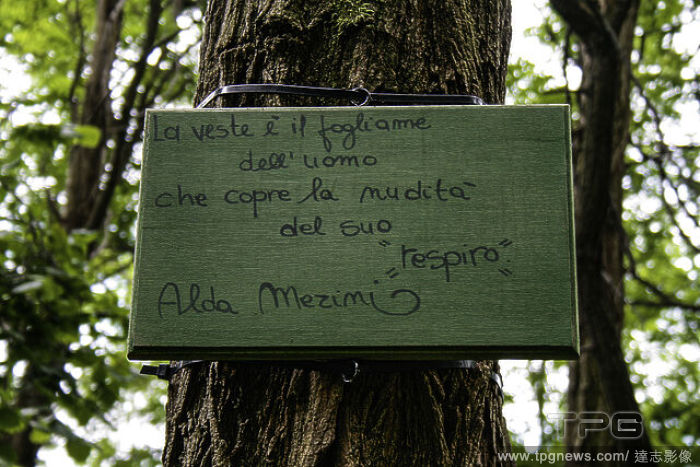 La veste è il fogliame
dell'uomo
che copre la nudità
del suo
"respiro".
Alda Merini
TPG
www.tpgnews.com/ 達志影像